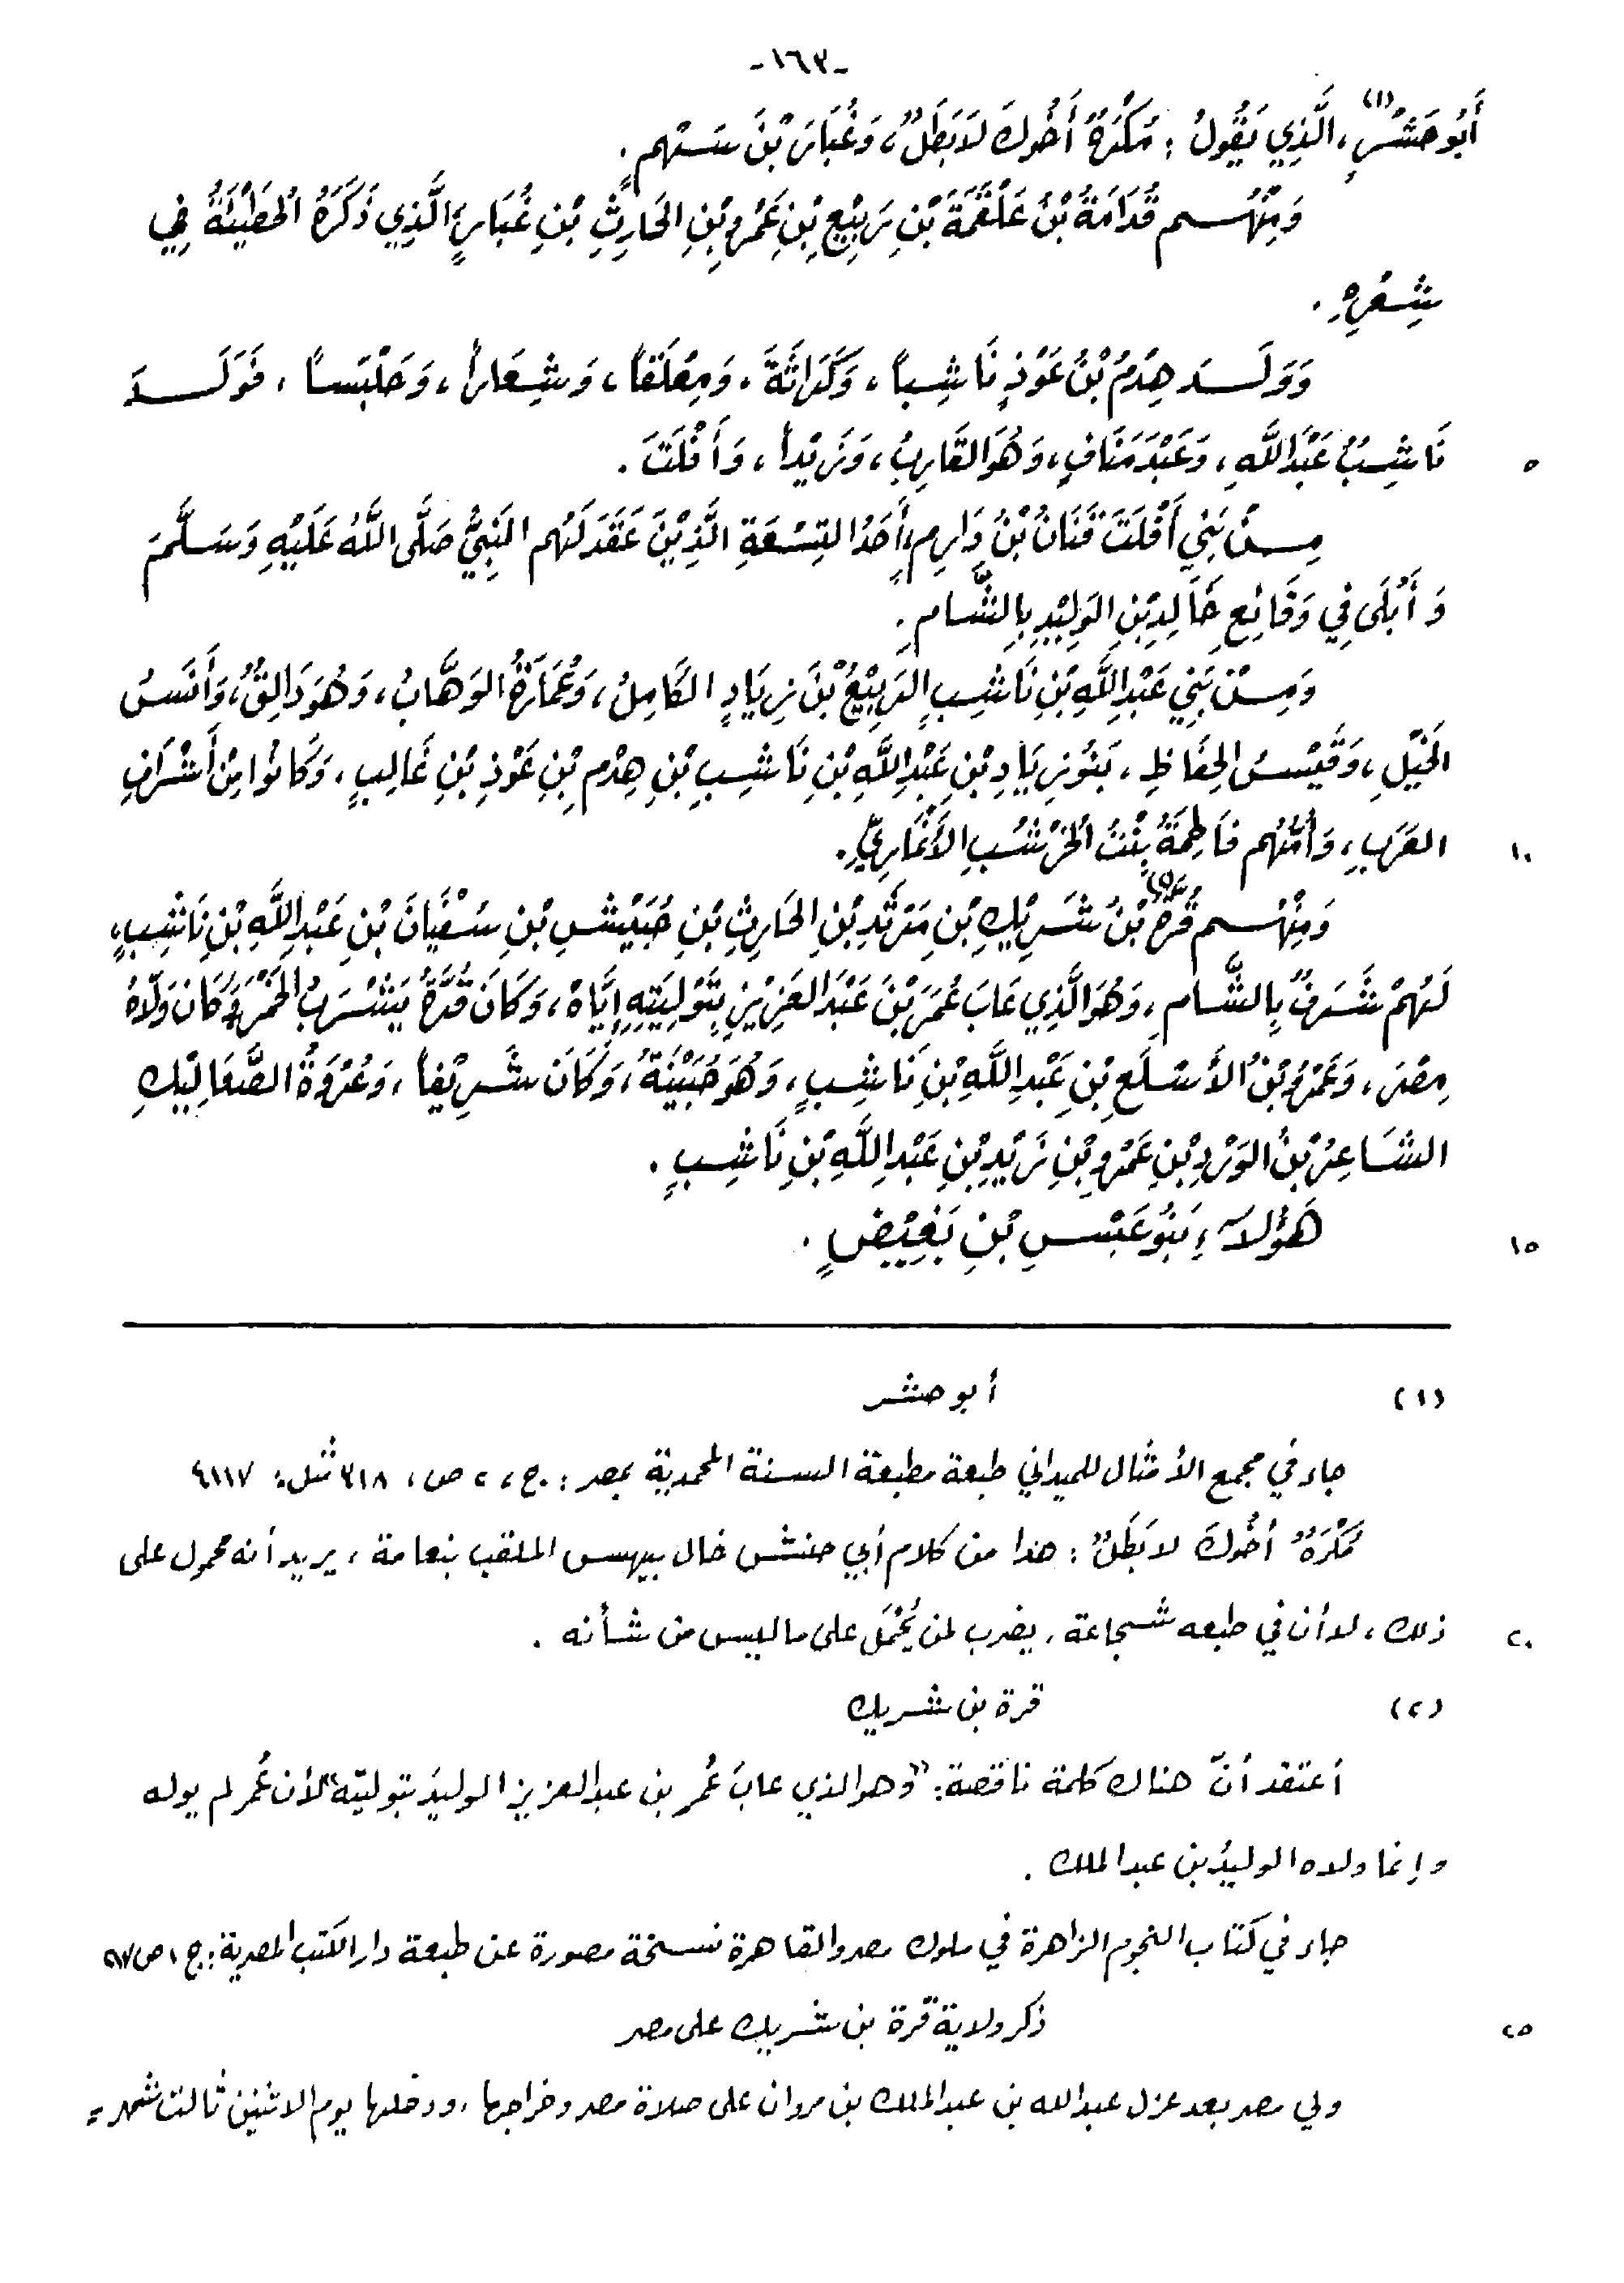 -١٦٣-
أَبُو حَشْرٍ(١)، الَّذِي يَقُولُ : مُكْرَهٌ أَخُوكَ لَا بَطَلٌ، وَغُبَارَ بْنَ سَهْمٍ.
وَمِنْهُم قُدَامَةُ بْنُ عَلْقَمَةَ بْنِ رَبِيْعِ بْنِ عَمْرِو بْنِ الحَارِثِ بْنِ غُبَارٍ، الَّذِي ذَكَرَهُ الحُطَيْئَةُ فِي
شِعْرِهِ .
وَوَلَدَ هِدْمُ بْنُ عَوْذٍ نَاشِباً، وَكَرَاثَةَ، وَمِعْلَقاً، وَشِعَاراً، وَحَلْبَسًا، فَوَلَدَ
نَاشِبُ عَبْدَ اللَّهِ، وَعَبْدَ مَنَافٍ، وَهُوَ القَارِبُ، وَزَيْداً، وَأَفْلَتَ .
٥
مِنْ بَنِي أَفْلَتَ قَنَانُ بْنُ دَارِمٍ، أَحَدُ التِسْعَةِ الَّذِيْنَ عَقَدَ لَهُم النَبِيُّ صَلَّى اللَّهُ عَلَيْهِ وَسَلَّمَ
وَأَبْلَى فِي وَقَائِعِ خَالِدِ بْنِ الوَلِيْدِ بِالشَّامِ .
وَمِنْ بَنِي عَبْدِ اللَّهِ بْنِ نَاشِبٍ الرَبِيْعُ بْنُ زِيَادٍ الكَامِلُ، وَعُمَارَةُ الوَهَّابُ، وَهُوَ دَالِقٌ، وَأَنَسُ
الخَيْلِ، وَقَيْسُ الحِفَاظِ، بَنُو زِيَادِ بْنِ عَبْدِ اللَّهِ بْنِ نَاشِبِ بْنِ هِدْمِ بْنِ عَوْذِ بْنِ غَالِبٍ، وَكَانُوا مِنْ أَشْرَافِ
العَرَبِ، وَأُمُّهُم فَاطِمَةُ بِنْتُ الخُرْشُبِ الأَنْمَارِيِّ .
١٠
وَمِنْهُم قُرَّةُ(٢) بْنُ شَرِيْكِ بْنِ مَرْثَدِ بْنِ الحَارِثِ بْنِ حُبَيْشِ بْنِ سُفْيَانَ بْنِ عَبْدِ اللَّهِ بْنِ نَاشِبٍ،
لَهُمْ شَرَفٌ بِالشَّامِ، وَهُوَ الَّذِي عَابَ عُمَرَ بْنَ عَبْدَ العَزِيْزِ بِتَوْلِيَتِهِ إِيَّاهُ، وَكَانَ قُرَّةُ يَشْرَبُ الخَمْرَ وَكَانَ وَلّاهُ
مِصْرَ، وَعَمْرُو بْنُ الأَسْلَعِ بْنِ عَبْدِ اللَّهِ بْنِ نَاشِبٍ، وَهُوَ حُبَيْنَةُ، وَكَانَ شَرِيْفاً، وَعُرْوَةُ الصَّعَالِيْكِ
الشَاعِرُ بْنُ الوَرْدِ بْنِ عَمْرِو بْنِ زَيْدِ بْنِ عَبْدِ اللَّهِ بْنِ نَاشِبٍ .
هَؤُلَاَءِ بَنُو عَبْسِ بْنِ بَغِيْضٍ .
١٥
(١) أبو حشر
جاء في مجمع الأمثال للميداني طبعة مطبعة السنة المحمدية بمصر : ج، ٢ ص، ٣١٨ مثل: ٤١١٧
مُكْرَهٌ أخُوكَ لا بَطَلٌ : هذا من كلام أبي حنش خال بيهس الملقب بنعامة، يريد أنه محمول على
ذلك، لا أن في طبعه شجاعة، يضرب لمن يُحْمَلُ على ما ليس من شأنه .
٢٠
(٢) قرة بن شريك
أعتقد أنّ هناك كلمة ناقصة: "وهو الذي عابَ عُمر بن عبد العزيز الوليدَ بتوليته" لأن عُمر لم يوله
وإنما ولاه الوليدُ بن عبد الملك .
جاء في كتاب النجوم الزاهرة في ملوك مصر والقاهرة نسخة مصورة عن طبعة دار الكتب المصرية: ج ١ ص
ذكر ولاية قرة بن شريك على مصر
٢٥
ولي مصر بعد عزل عبد الله بن عبد الملك بن مروان على صلاة مصر وخراجها، ودخلها يوم الاثنين ثالث شهر =